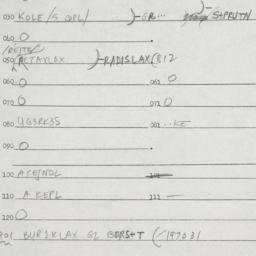 030 KOLE/S OPL/ )-GR... S+PRUTN
040 O
050 RETAYLAX )-RADISLAX(R12
060 O 061 O
070 O 071 O
080 UG3RK35 081 ..KE
090 O
100 ACEJNDL 101
110 A KEPL 111 —
120 O
201 BURSKLAX G2 BERS+T (-197031